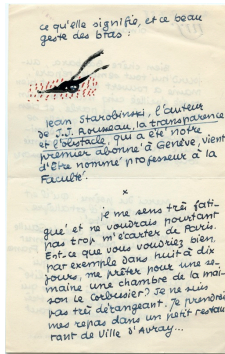 ce qu'elle signifie, et ce beau
geste des bras :
Jean Starobinski, l'auteur
de J.J. Rousseau, la transparence
et l'obstacle, qui a été notre
premier abonné à Genève, vient
d'être nommé professeur à la
Faculté.
*
je me sens très fati-
gué et ne voudrais pourtant
pas trop m'écarter de Paris.
Est-ce que vous voudriez bien,
par exemple dans huit à dix
jours, me prêter pour une se-
maine une chambre de la mai-
son le Corbusier? Je ne suis
pas très dérangeant. Je prendrai
mes repas dans un petit restau
rant de Ville d'Avray...